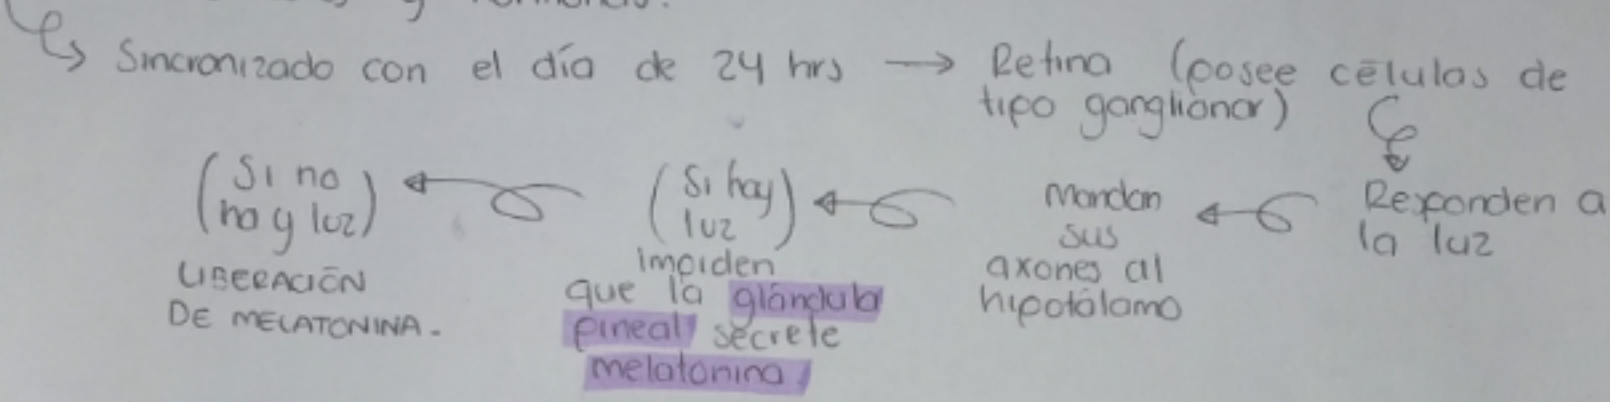 y
Sincronizado con el día de 24 hrs → Retina (posee células de
tipo ganglionar)
Responden a
la luz
mandan
sus
axones al
hipotálamo
(Si hay
luz)
impiden
que la glándula
pineal secrete
melatonina.
(Si no
hay luz)
LIBERACIÓN
DE MELATONINA.